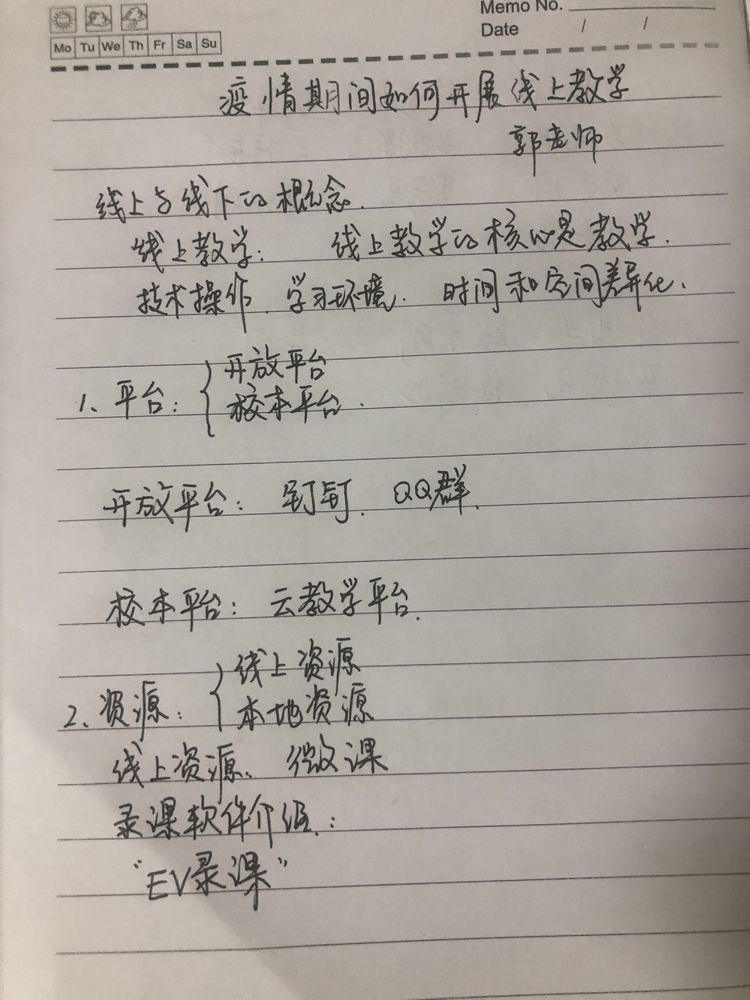 Memo No.
Mo Tu We Th Fr Sa Su
Date / /
疫情期间如何开展线上教学
郭老师
线上与线下的概念.
线上教学: 线上教学的核心是教学.
技术操作. 学习环境. 时间和空间差异化.
1、平台: { 开放平台
校本平台.
开放平台: 钉钉. QQ群.
校本平台: 云教学平台.
2、资源: { 线上资源
本地资源
线上资源、微课
录课软件介绍:
"EV录课"